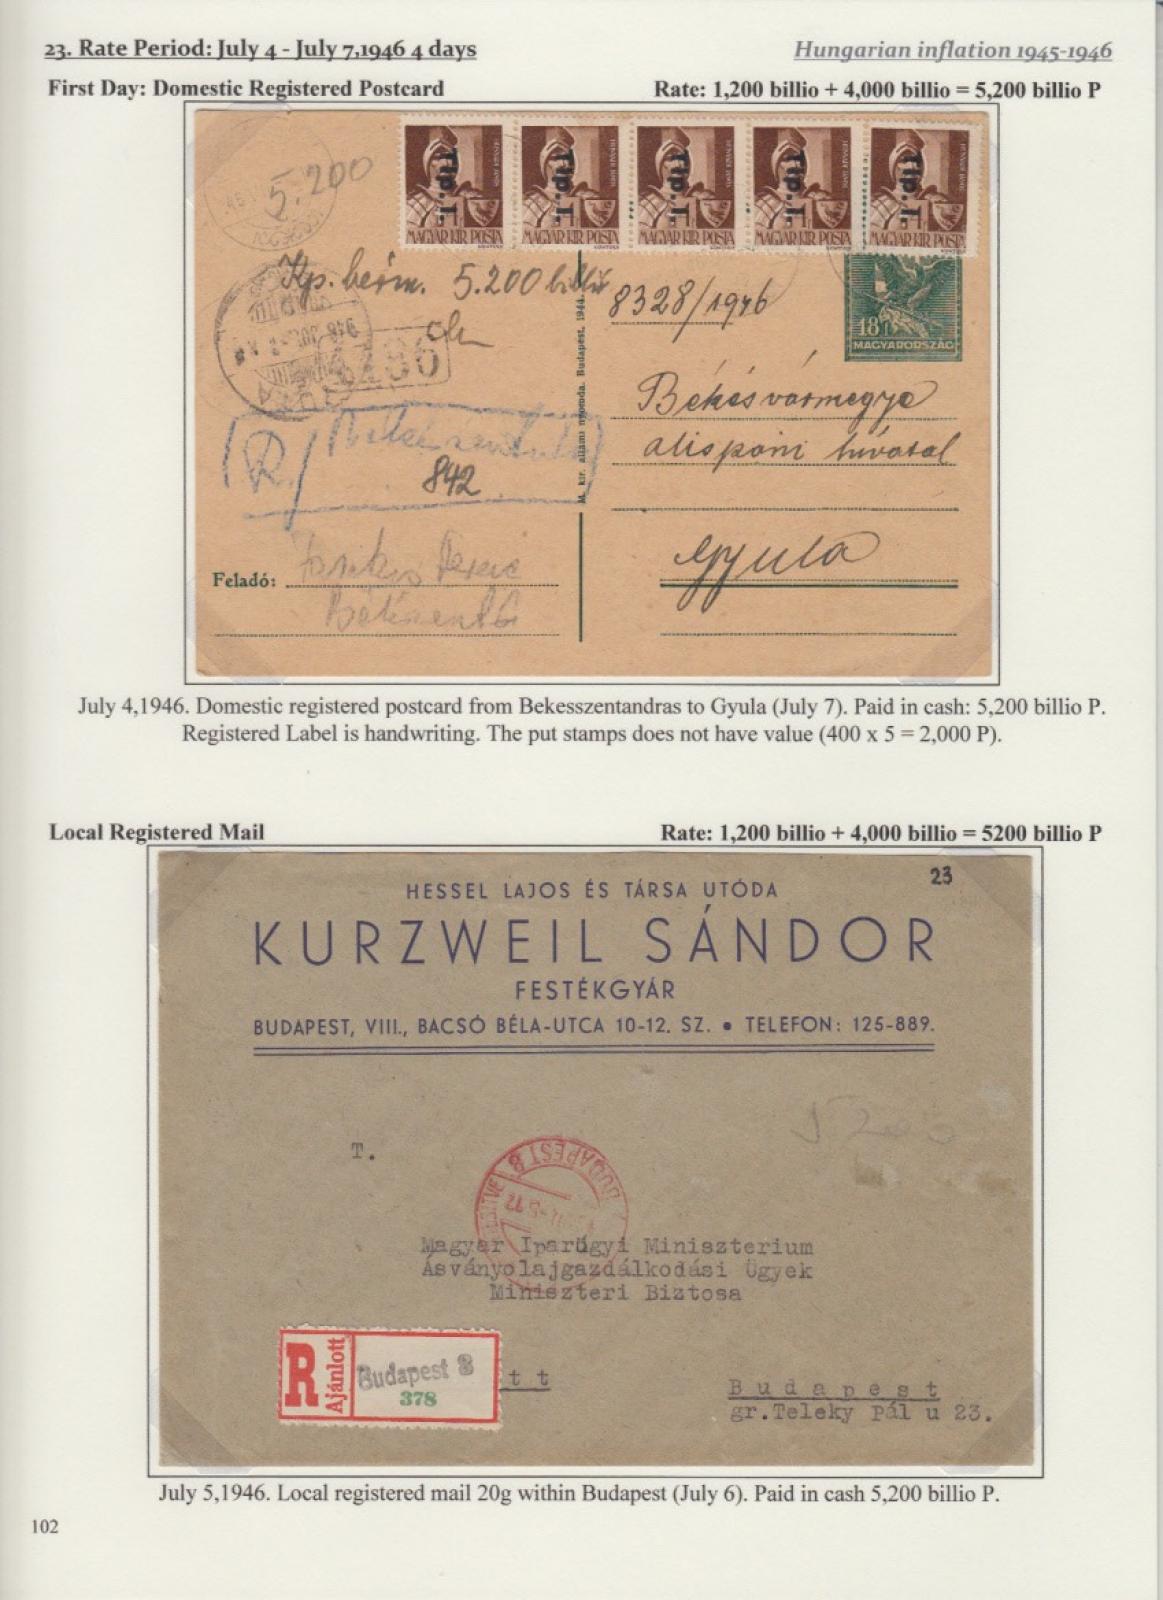 23. Rate Period: July 4 - July 7,1946 4 days
Hungarian inflation 1945-1946
First Day: Domestic Registered Postcard
Rate: 1,200 billio + 4,000 billio = 5,200 billio P
5.200
Tip. I. Tip. I. Tip. I. Tip. I. Tip. I.
MAGYAR KIR POSTA MAGYAR KIR POSTA MAGYAR KIR POSTA MAGYAR KIR POSTA MAGYAR KIR POSTA
Kp. beérm. 5.200 billió
8328/1946
18
MAGYARORSZÁG
M. kir. állami nyomda. Budapest, 1944.
Békésvármegye
alispáni hivatal
R
842
Gyula
Feladó:
July 4,1946. Domestic registered postcard from Bekesszentandras to Gyula (July 7). Paid in cash: 5,200 billio P.
Registered Label is handwriting. The put stamps does not have value (400 x 5 = 2,000 P).
Local Registered Mail
Rate: 1,200 billio + 4,000 billio = 5200 billio P
23
HESSEL LAJOS ÉS TÁRSA UTÓDA
KURZWEIL SÁNDOR
FESTÉKGYÁR
BUDAPEST, VIII., BACSÓ BÉLA-UTCA 10-12. SZ. • TELEFON: 125-889.
T.
BUDAPEST 8
Magyar Iparügyi Miniszterium
Ásványolajgazdálkodási Ügyek
Miniszteri Biztosa
R Ajánlott
Budapest 8
378
tt
Budapest
gr.Teleky Pál u 23.
July 5,1946. Local registered mail 20g within Budapest (July 6). Paid in cash 5,200 billio P.
102